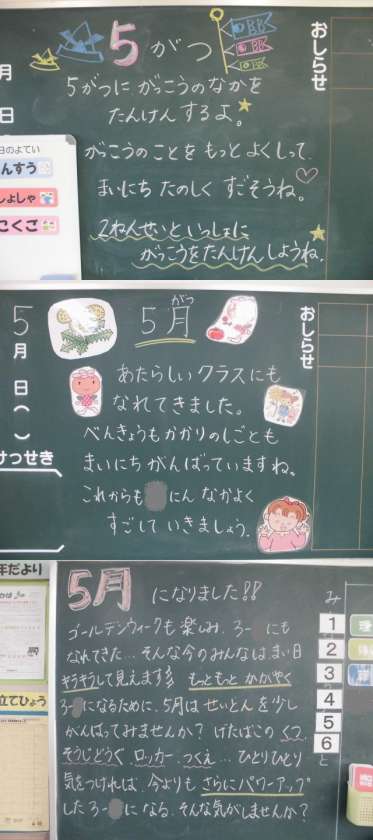 5がつ
BB
BB
おしらせ
月
日
5がつに がっこうのなかを
たんけん するよ。
がっこうのことを もっと よくしって、
まいにち たのしく すごそうね。
2ねんせいといっしょに
がっこうをたんけんしようね。
日のよてい
んすう
しょしゃ
こくご
5月
がつ
おしらせ
5
月
日
けっせき
あたらしい クラスにも
なれてきました。
べんきょうもかかりのしごとも
まいにち がんばっていますね。
これからも にん なかよく
すごして いきましょう。
年だより
立てひょう
5月 になりました!!
ゴールデンウィークも楽しみ、3- にも
なれてきた…そんな今のみんなは、まい日
キラキラして見えます。もっともっと かがやく
3- になるために、5月は せいとんを少し
がんばってみませんか? げたばこの くつ、
そうじどうぐ、ロッカー、つくえ…ひとりひとり
気をつければ、今よりも さらにパワーアップ
した 3- になる、そんな気がしませんか?
み
1
2
3
4
5
6